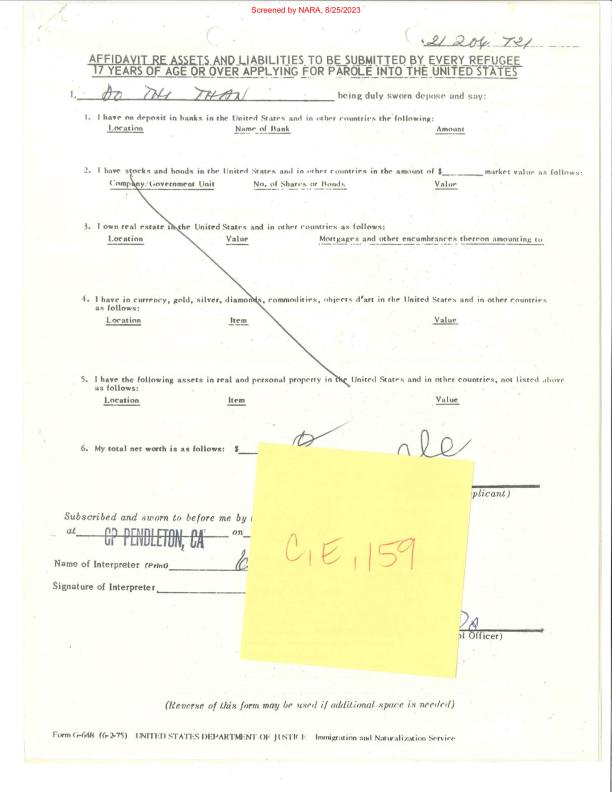 Screened by NARA, 8/25/2023
21 204 721
AFFIDAVIT RE ASSETS AND LIABILITIES TO BE SUBMITTED BY EVERY REFUGEE
17 YEARS OF AGE OR OVER APPLYING FOR PAROLE INTO THE UNITED STATES
I, DO THI THAN being duly sworn depose and say:
1. I have on deposit in banks in the United States and in other countries the following:
Location Name of Bank Amount
2. I have stocks and bonds in the United States and in other countries in the amount of $ market value as follows:
Company/Government Unit No. of Shares or Bonds Value
3. I own real estate in the United States and in other countries as follows:
Location Value Mortgages and other encumbrances thereon amounting to
4. I have in currency, gold, silver, diamonds, commodities, objects d'art in the United States and in other countries
as follows:
Location Item Value
5. I have the following assets in real and personal property in the United States and in other countries, not listed above
as follows:
Location Item Value
6. My total net worth is as follows: $
plicant)
Subscribed and sworn to before me by
at CP PENDLETON, CA on
Name of Interpreter (Print)
Signature of Interpreter
C,E,159
Officer)
(Reverse of this form may be used if additional space is needed)
Form G-648 (6-2-75) UNITED STATES DEPARTMENT OF JUSTICE Immigration and Naturalization Service